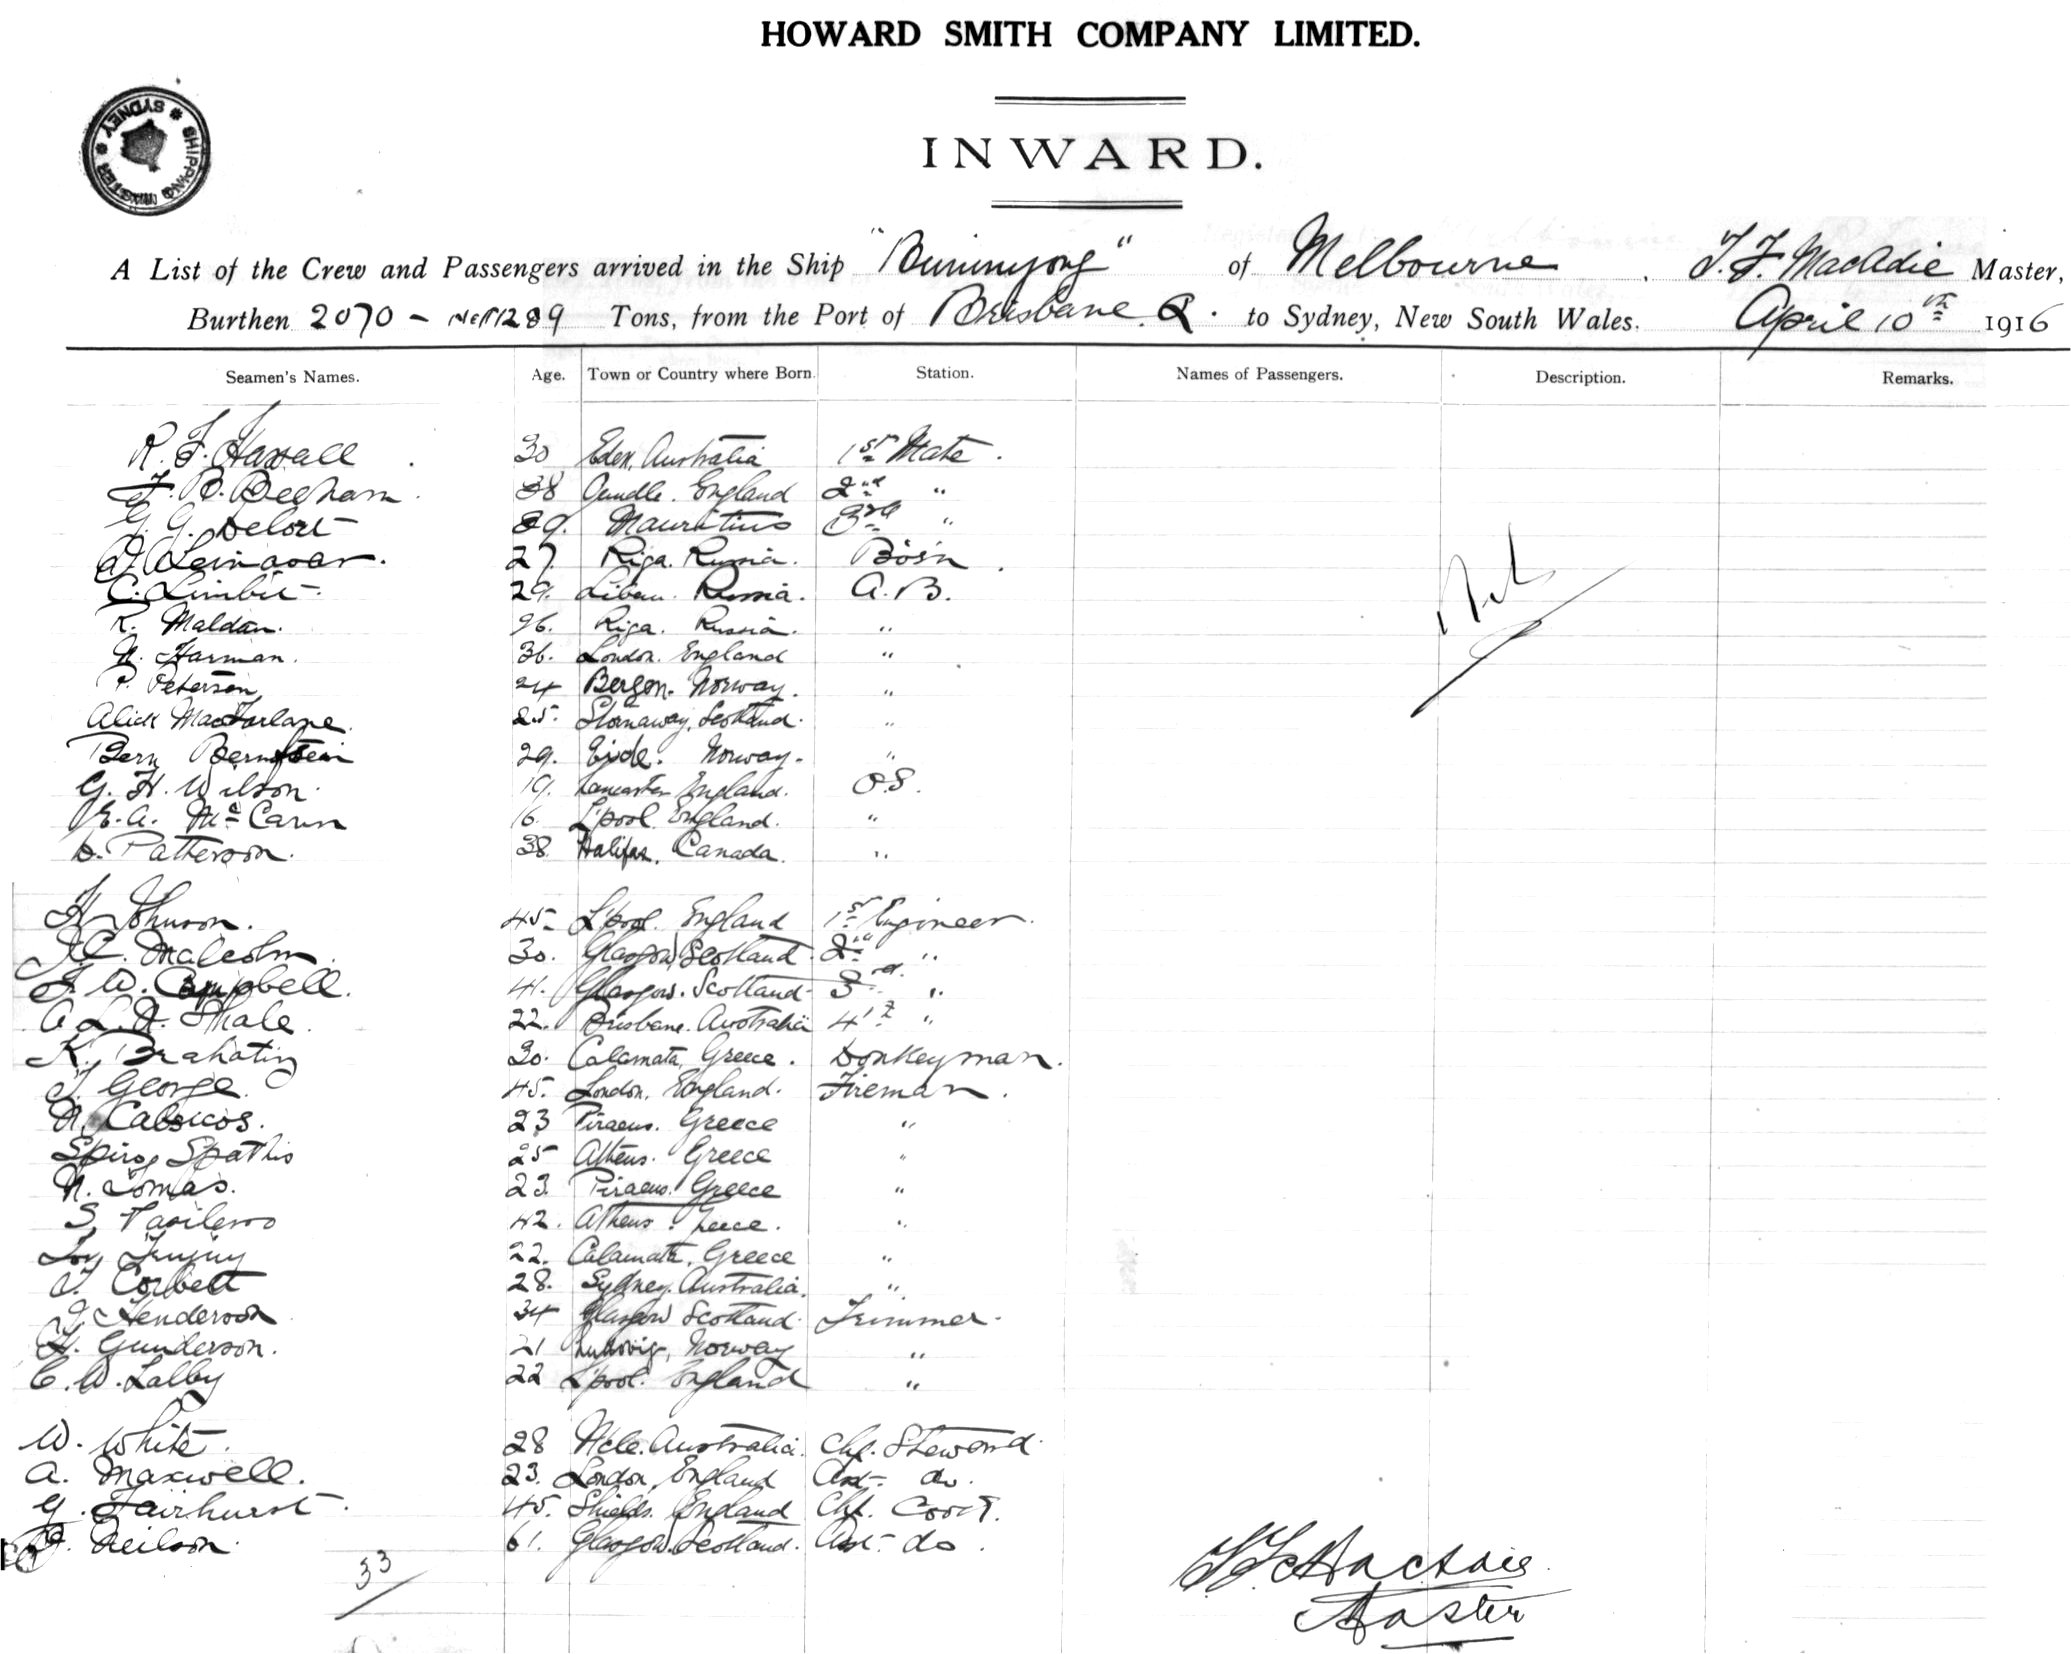 HOWARD SMITH COMPANY LIMITED.
SHIPPING MASTER * SYDNEY *
INWARD.
A List of the Crew and Passengers arrived in the Ship "Buninyong" of Melbourne. T. F. MacAdie Master,
Burthen 2070 - Nett 1289 Tons, from the Port of Brisbane. Q. to Sydney, New South Wales. April 10th 1916
Seamen's Names. Age. Town or Country where Born. Station. Names of Passengers. Description. Remarks.
R. F. Hassall 30 Eden, Australia 1st Mate.
F. B. Beeham. 38 England 2nd "
G. G. Delort 39. Mauritius 3rd "
27. Riga. Russia. Bos'n.
C. Limbit. 29. Libau. Russia. A.B.
R. Maldan. 26. Riga. Russia. "
N. Harman. 36. London. England "
P. Peterson 24 Bergen. Norway. "
Alick MacFarlane. 25. Stornaway, Scotland. "
Bern Bernstein 29. Eide. Norway. "
G. H. Wilson. 19. Lancaster England. O.S.
E. A. McCann 16. L'pool. England. "
D. Patterson. 38. Halifax, Canada. "
H Johnson. 45. L'pool. England 1st Engineer.
J. C. Malcolm. 30. Glasgow, Scotland. 2nd "
J. W. Campbell. 41. Glasgow. Scotland 3rd "
A. L. N. Thale. 22. Brisbane. Australia 4th "
K. Brahatis 30. Calamata, Greece. Donkeyman.
J. George. 45. London, England. Fireman.
N. Cabsicos. 23 Piraeus. Greece "
Spiros Spathis 25 Athens. Greece "
N. Tomas. 23. Piraeus. Greece "
S. Vasileros 42. Athens. Greece. "
22. Calamata, Greece "
J. Corbett 28. Sydney. Australia. "
J. Henderson 34 Glasgow Scotland. Trimmer.
H. Gunderson. 21 Norway "
C. W. Lalby 22 L'pool. England "
W. White. 28 Ncle. Australia. Chf. Steward.
A. Maxwell. 23. London, England Asst. do.
G. Fairhurst. 45. Shields. England Chf. Cook.
Neilson. 61. Glasgow. Scotland. Asst. do.
33
T. F. MacAdie
Master